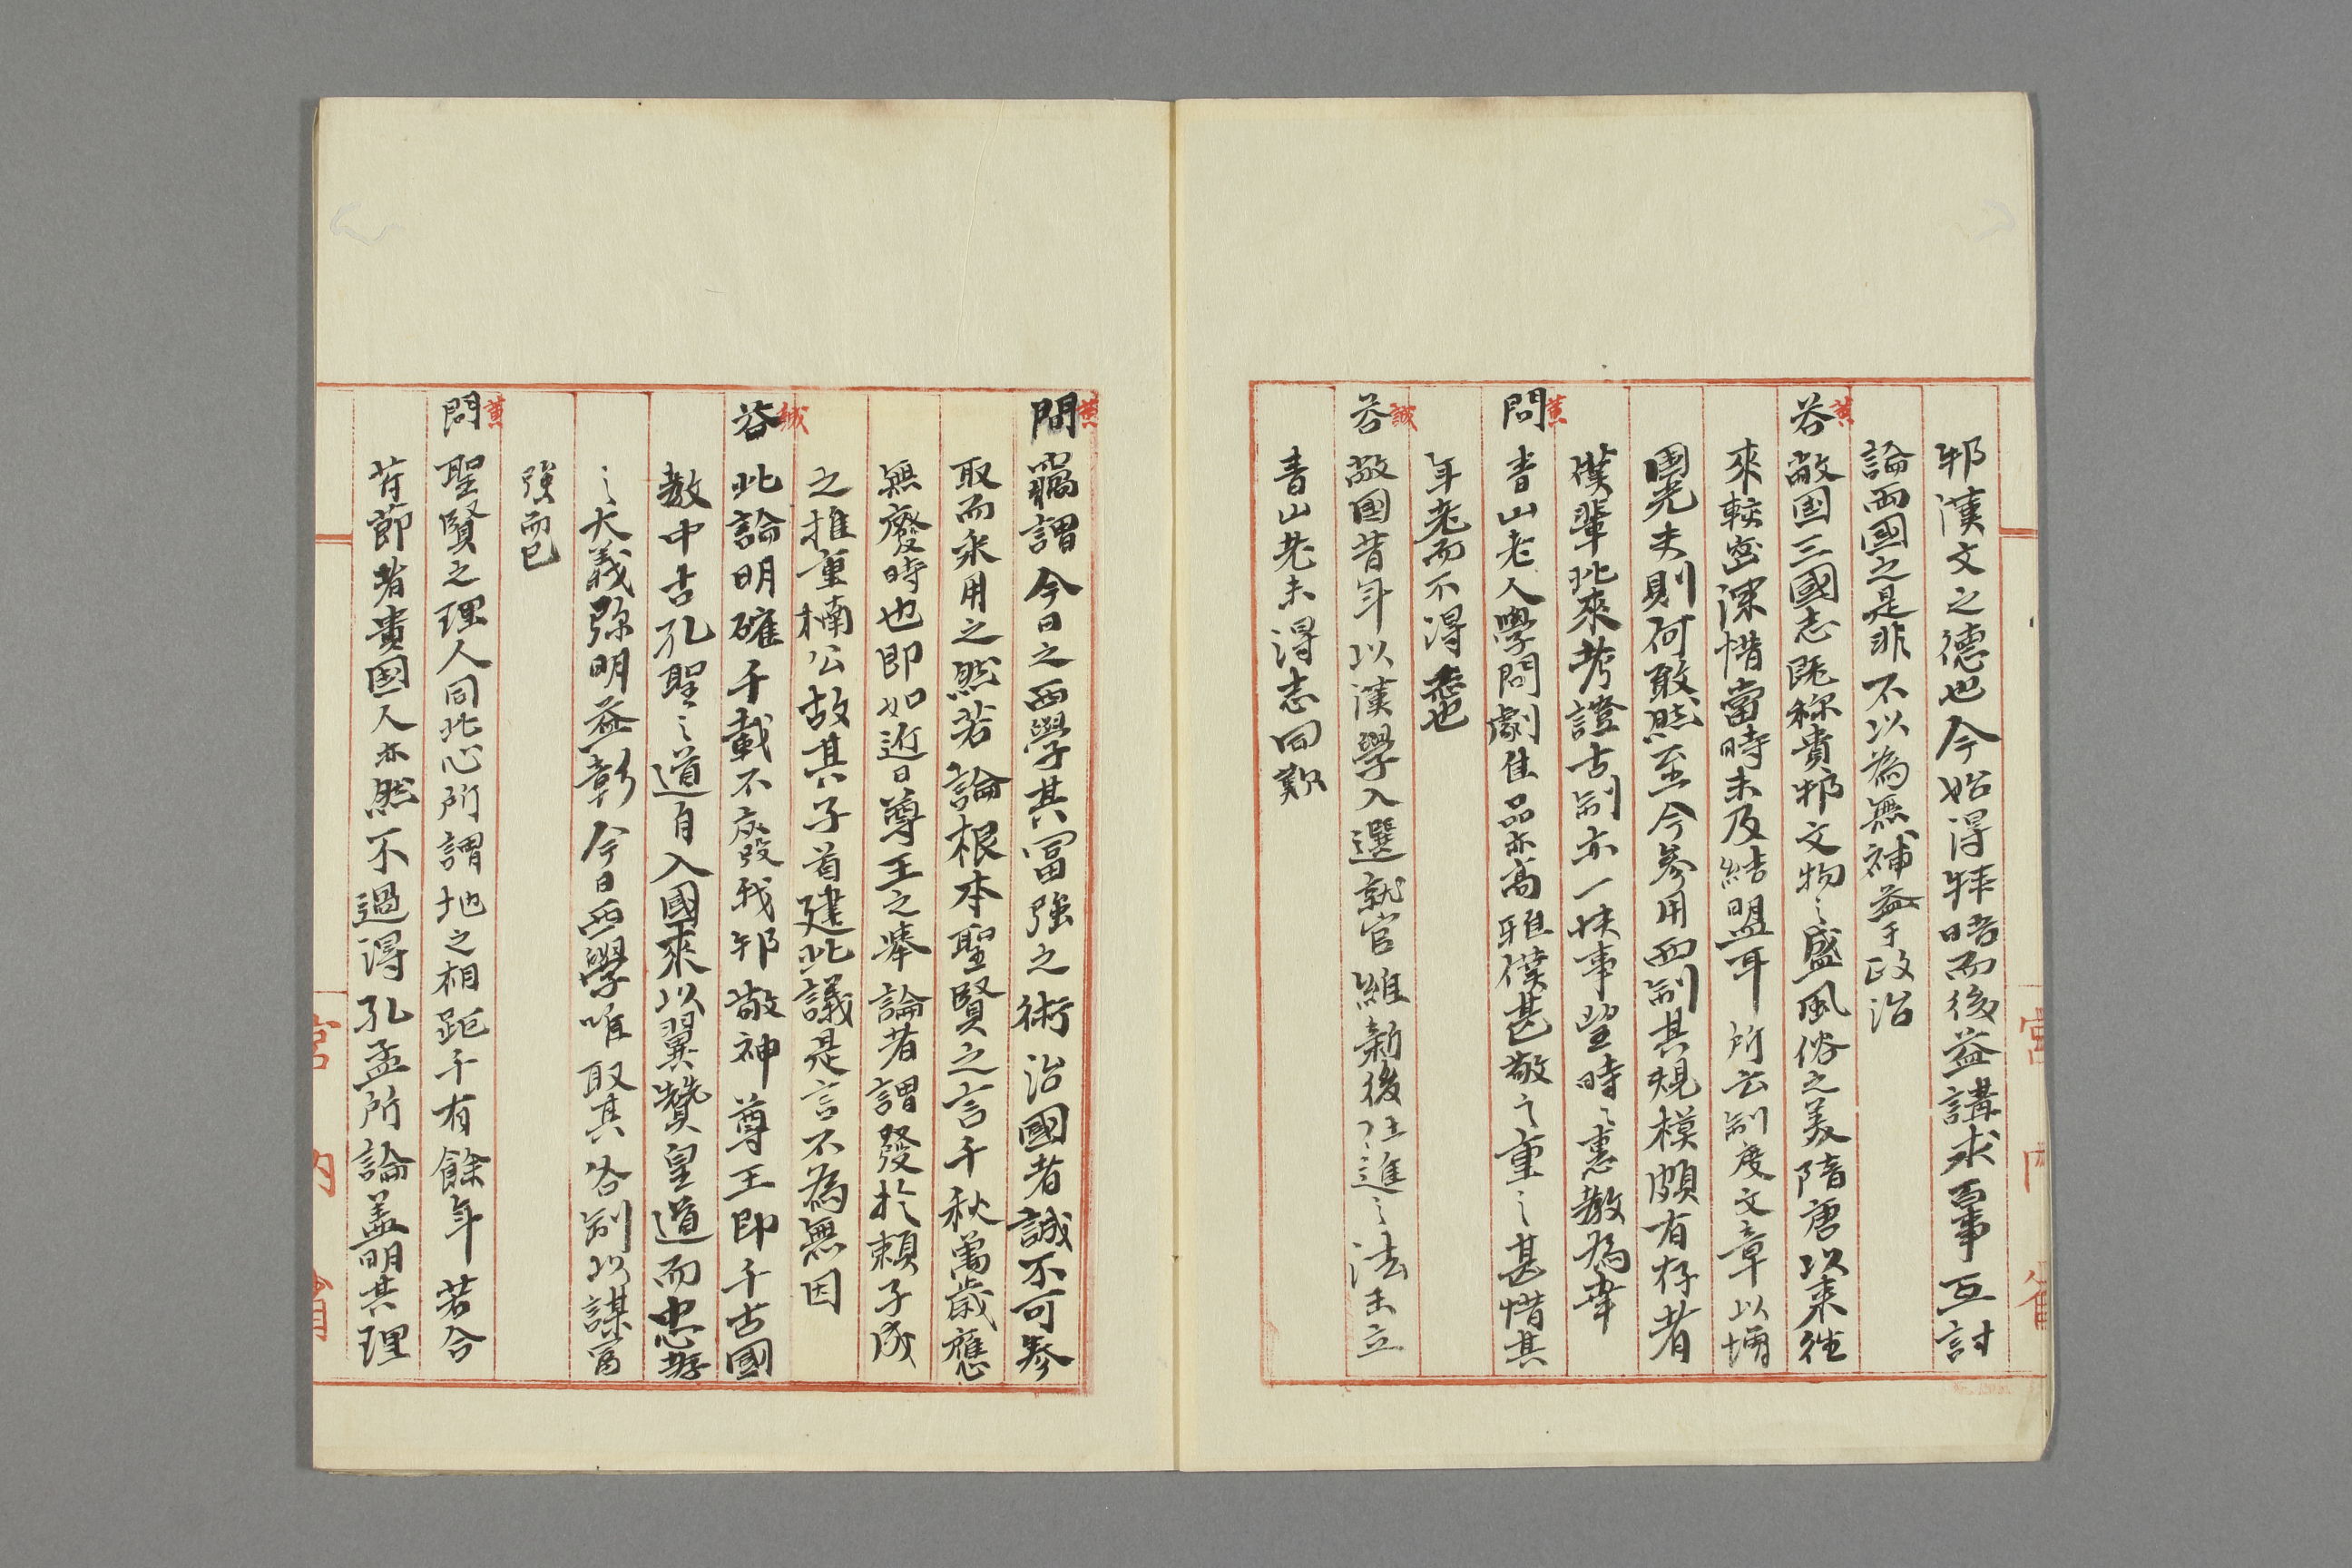 邦漢文之德也今始得拜晤而後益講求百事互討
論兩國之是非不以為無補益于政治
黃
答敝国三國志既称貴邦文物之盛風俗之美隋唐以来往
來較密深惜當時未及結盟耳所云制度文章以埔
国光夫則何敢然至今参用西制其規模頗有存者
僕輩此來考證古制亦一快事望時々惠教為幸
黃
問青山老人學問劇佳品亦高雅僕甚敬之重之甚惜其
年老而不得志也
誠
答敝國昔年以漢學入選就官維新後仕進之法未立
青山老未得志同歎
黃
問竊謂今日之西學其冨強之術治國者誠不可参
取而采用之然若論根本聖賢之言千秋萬歲應
無廢時也即如近日尊王之舉論者謂發於賴子成
之推重楠公故其子首建此議是言不為無因
誠
答此論明確千載不廢我邦敬神尊王即千古國
教中古孔聖之道自入國來以翼贊皇道而忠孝
之大義弥明益彰今日西學唯取其各制以謀富
強而已
黃
問聖賢之理人同此心所謂地之相距千有餘年若合
符節者貴國人亦然不過得孔孟所論蓋明其理
宮內省